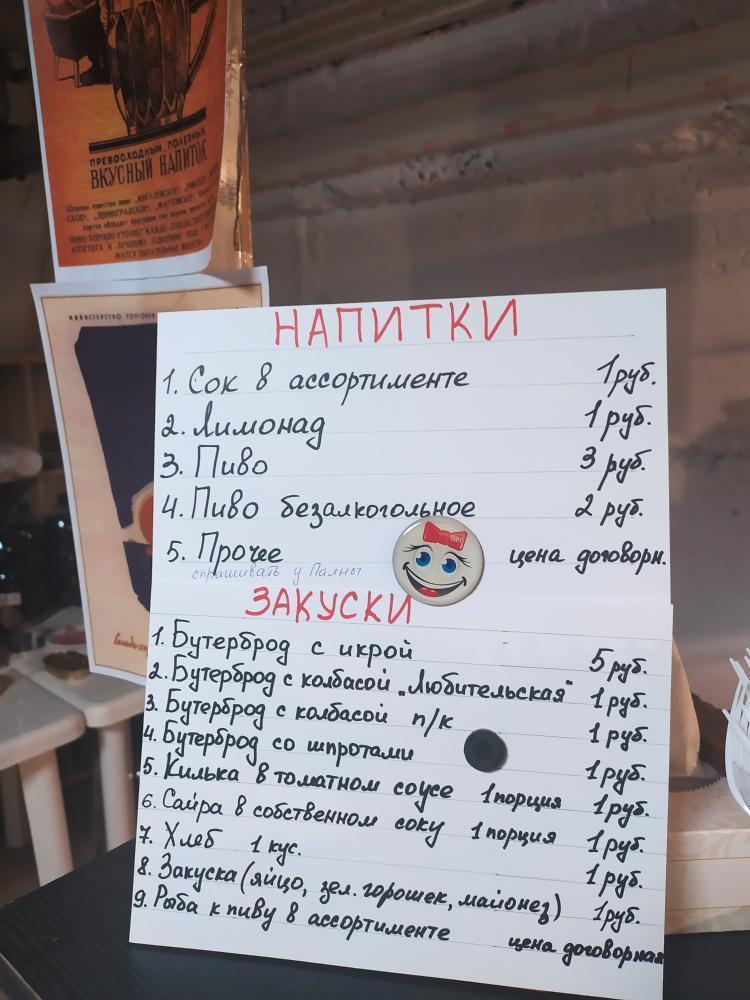 ПРЕВОСХОДНЫЙ, ПОЛЕЗНЫЙ,
ВКУСНЫЙ НАПИТОК
СКОЕ", „ЛЕНИНГРАДСКОЕ", „МАРТОВСКОЕ"
ПИВО ХОРОШО УТОЛЯЕТ ЖАЖДУ,
АППЕТИТА И ЛУЧШЕМУ
ЖАТСЯ ПИТАТЕЛЬНЫЕ ВЕЩЕСТВА
МИНИСТЕРСТВО ТОРГОВ
НАПИТКИ
1. Сок в ассортименте 1 руб.
2. Лимонад 1 руб.
3. Пиво 3 руб.
4. Пиво безалкогольное 2 руб.
5. Прочее цена договорн.
спрашивать у Палны
ЗАКУСКИ
1. Бутерброд с икрой 5 руб.
2. Бутерброд с колбасой „Любительская" 1 руб.
3. Бутерброд с колбасой п/к 1 руб.
4. Бутерброд со шпротами 1 руб.
5. Килька в томатном соусе 1 порция 1 руб.
6. Сайра в собственном соку 1 порция 1 руб.
7. Хлеб 1 кус. 1 руб.
8. Закуска (яйцо, зел. горошек, майонез) 1 руб.
9. Рыба к пиву в ассортименте цена договорная